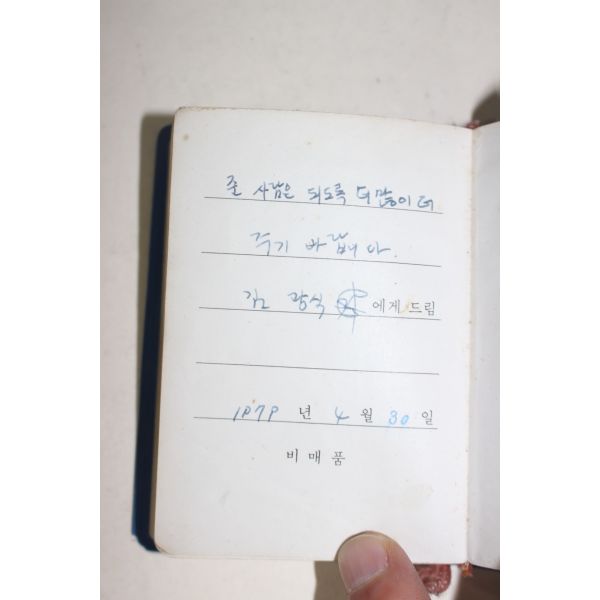 줄 사람은 되도록 더 많이 더
주기 바랍니다.
김 광식 에게 드림
1979 년 4 월 30 일
비매품